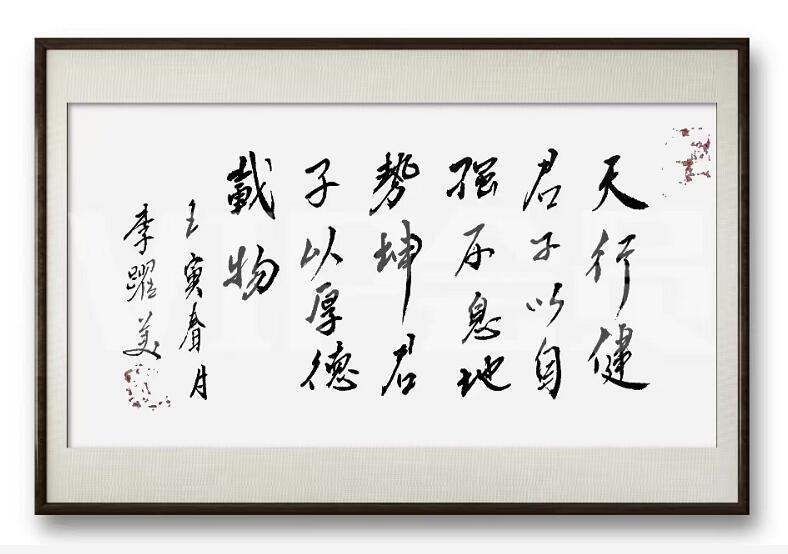 天行健
君子以自
强不息地
势坤君
子以厚德
載物
壬寅春月
李躍美